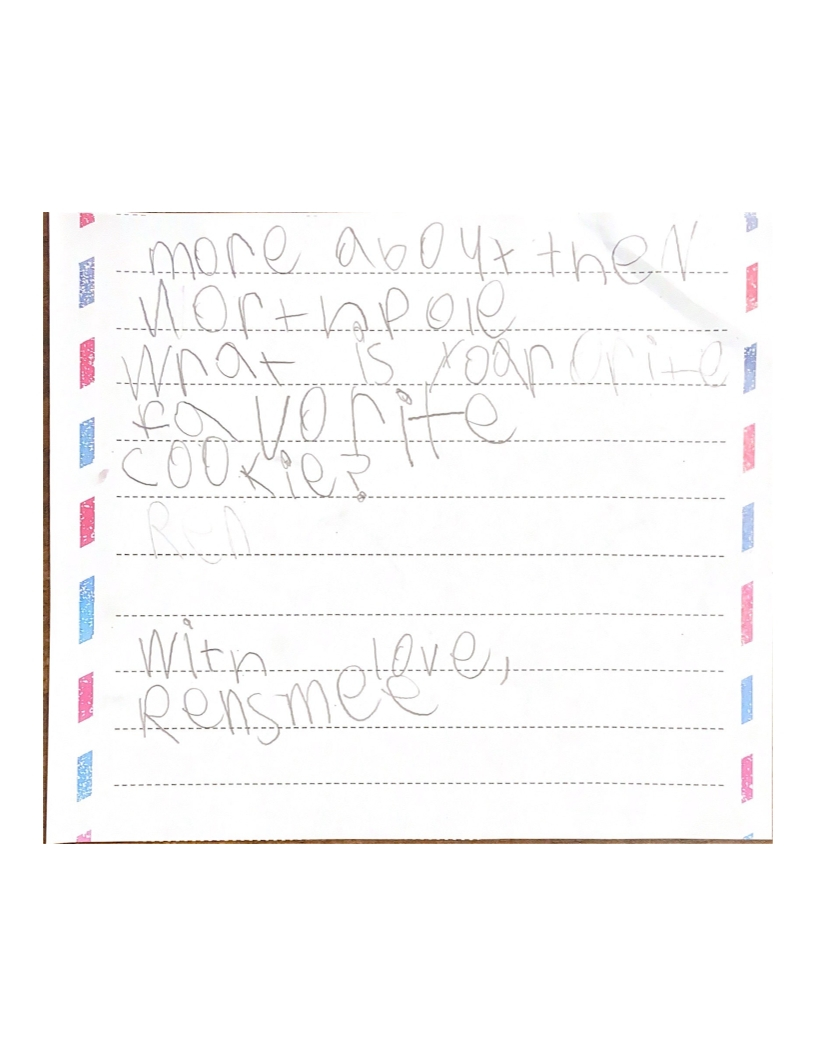 more about the N
Northpole
What is your
favorite
cookie?
Ren
With love,
Rensmee